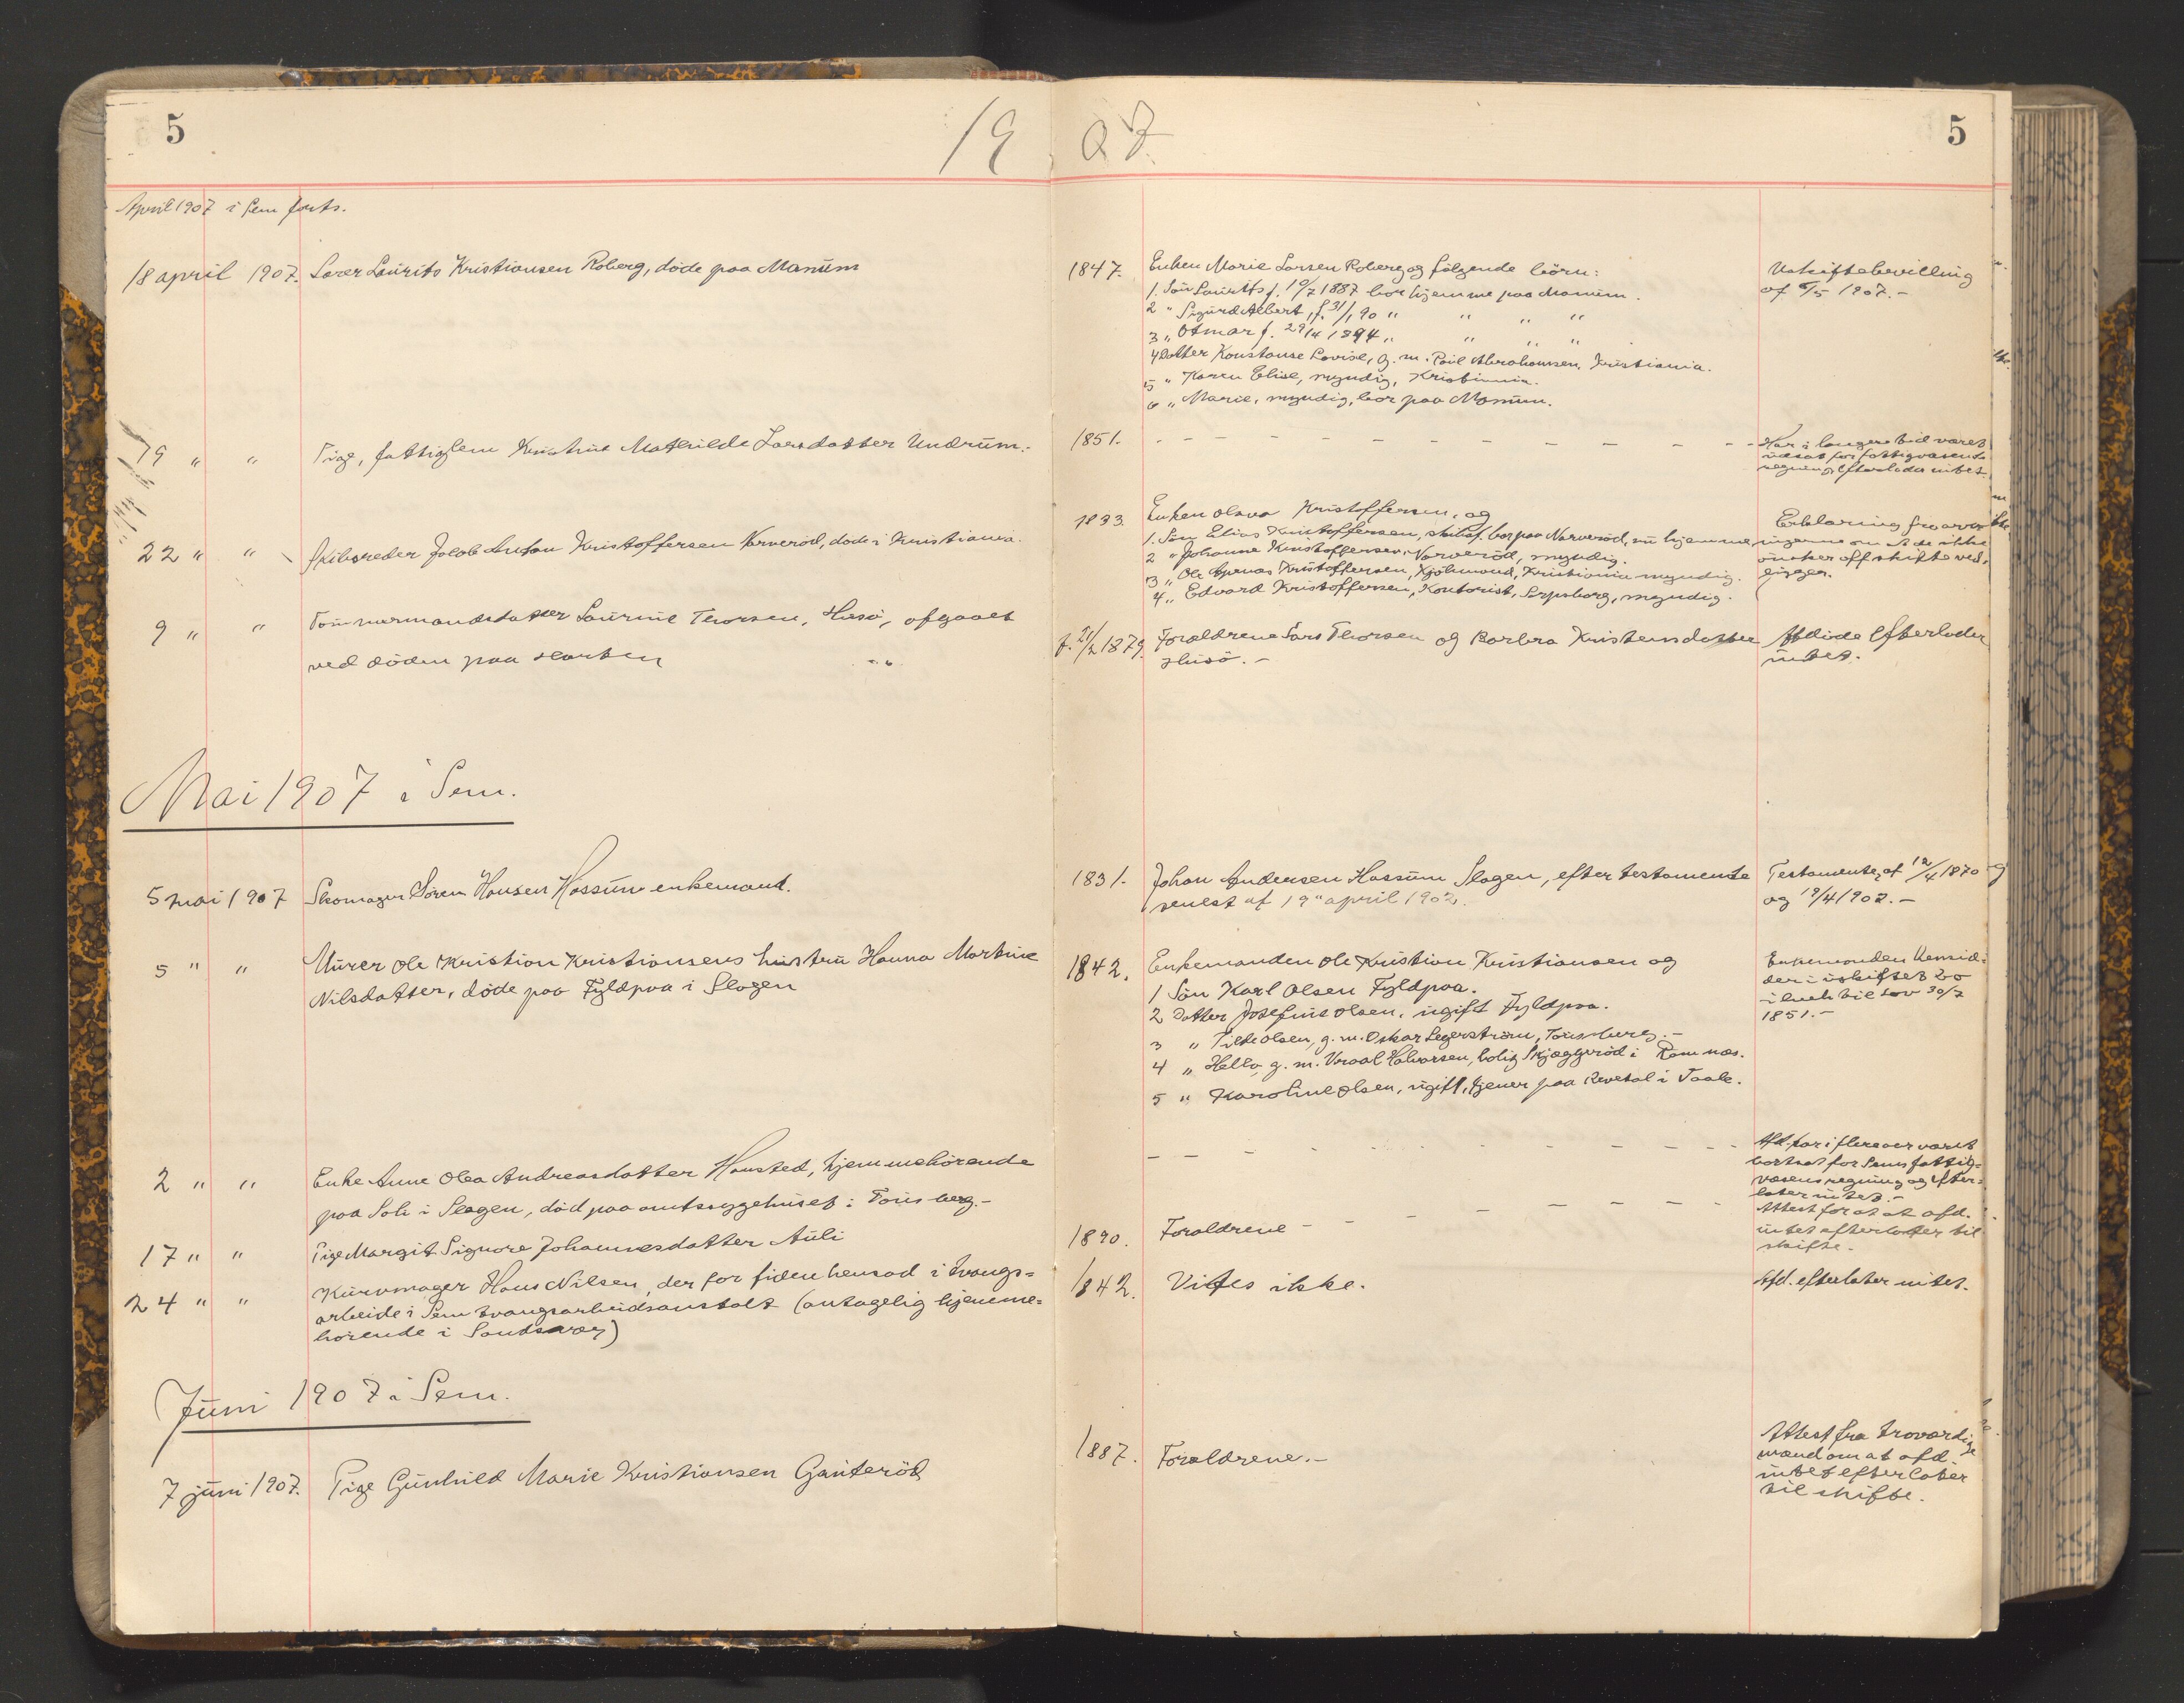 5
19 07.
5
April 1907 i Sem forts.
18 april 1907. Laurits Kristiansen Roberg, döde paa Manum
1847. Enken Marie Larsen Roberg og fölgende börn:
1. Sön Laurits f. 10/7 1887 bor hjemme paa Manum.
2 " Sigurd Albert, f. 31/1 90 " " " "
3 " Otmar f. 29/4 1894 " " " "
4 Datter Konstanse Lovise, g. m. Paul Abrahamsen, Kristiania.
5 " Karen Elise, myndig, Kristiania.
6 " Marie, myndig, bor paa Manum.
Uskiftebevilling
af 6/5 1907.-
19 " " Pige, fattiglem Mathilde Larsdatter Undrum.-
1851. - - - - - - - - - -
Har i længere tid været
udsat for fattigvæsenets
regning. Efterlader intet.
22 " " Skibsreder Jakob Anton Kristoffersen Narveröd, döde i Kristiania.
1833. Enken Olava Kristoffersen, og
1. Sön Elias Kristoffersen, bor paa Narveröd, nu hjemme,
2 " Johanne Kristoffersen, Narveröd, myndig.
3 " Ole Kristoffersen, Kjöbmand, Kristiania myndig.
4 " Edvard Kristoffersen, Kontorist, Sarpsborg, myndig.
Erklæring fra arvingerne om at de ikke
önsker off. skifte vedligger.
9 " " Tömmermandsdatter Laurine Thorsen, Husö, afgaaet
ved döden paa Horten
f. 21/2 1879. Foraldrene Lars Thorsen og Barbra Kristensdatter
Husö.-
Afdöde efterlader
intet.
Mai 1907 i Sem.
5 mai 1907 Skomager Sören Hansen Hassum enkemand.
1831. Johan Andersen Hassum Slagen, efter testamente
senest af 19de april 1902.
Testamente af 12/4 1870
og 19/4 1902.-
5 " " Murer Ole Kristian Kristiansens hustru Hanna Martine
Nilsdatter, döde paa Fyldpaa i Slagen
1842. Enkemanden Ole Kristian Kristiansen og
1 Sön Karl Olsen Fyldpaa.
2 Datter Josefine Olsen, ugift Fyldpaa.
3 " Olsen, g. m. Oskar Legerström, Tönsberg.-
4 " Hella, g. m. Vraal Halvorsen, bolig Skjæggeröd i Ramnæs.
5 " Karoline Olsen, ugift, tjener paa Revetal i Vaale.
Enkemanden hensidder i uskiftet bo
i henh. til lov 30/7
1851.-
2 " " Enke Anne Olea Andreasdatter Hansted, hjemmehörende
paa Solli i Slagen, död paa amtssygehuset i Tönsberg.-
- - - - - - - - -
Afd. har i flere aar været
bortsat for Sems fattigvæsens regning og efterlater intet.-
17 " " Pige Margit Signora Johannesdatter Auli
1890. Foraldrene - - - - - - - -
Attest for at afd.
intet efterlater til
skifte.-
24 " " Kurvmager Hans Nilsen, der for tiden hensad i tvangs=
arbeide i Sem tvangsarbeidsanstalt (antagelig hjemme=
hörende i Sandsvær)
1842. Vides ikke.
Afd. efterlater intet.
Juni 1907 i Sem.
7 juni 1907. Pige Gunhild Marie Kristiansen Gauteröd
1887. Foraldrene.-
Attest fra troværdige
mænd om at afd.
intet efterlater
til skifte.